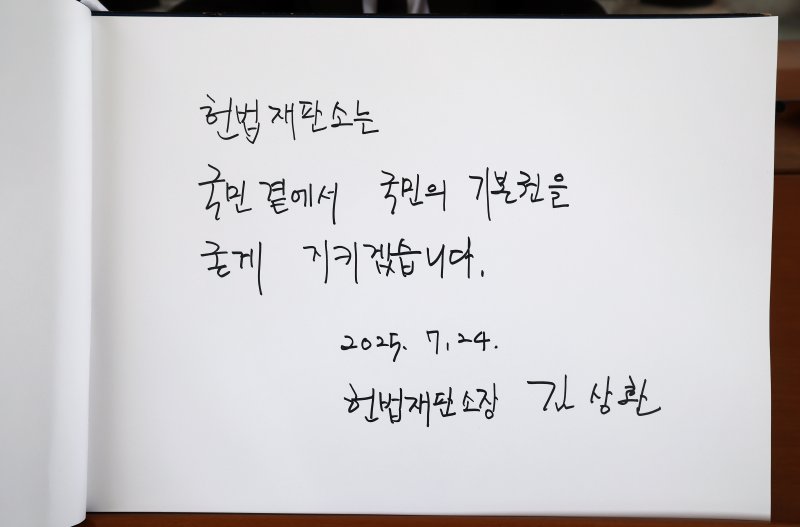 헌법재판소는
국민 곁에서 국민의 기본권을
굳게 지키겠습니다.
2025. 7. 24.
헌법재판소장 김상환